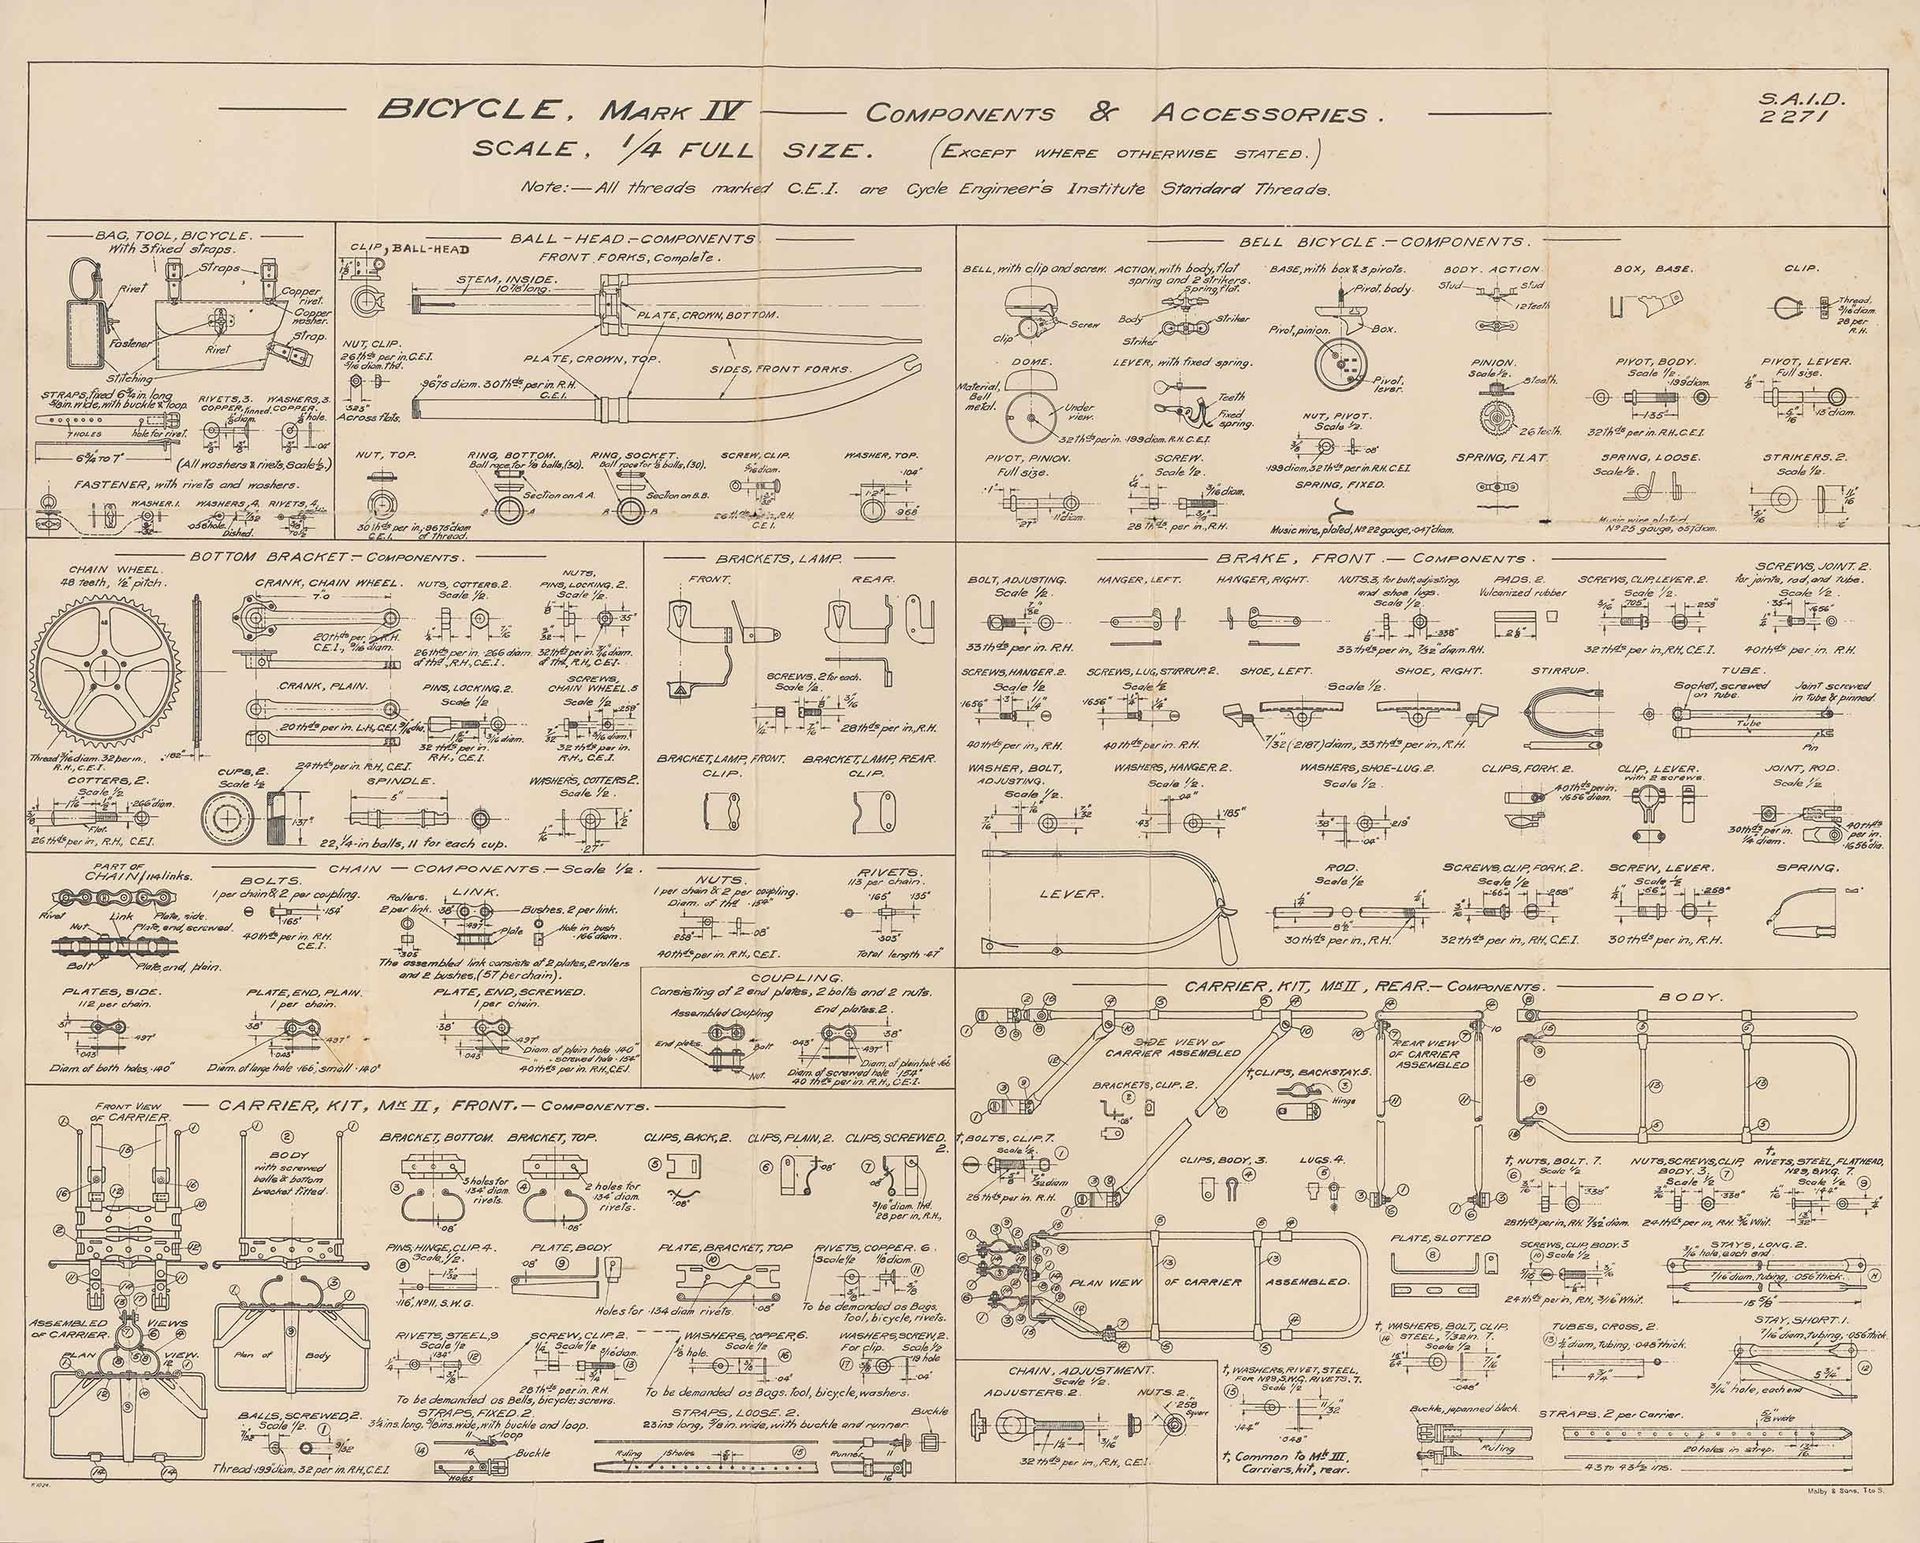 BICYCLE, MARK IV — COMPONENTS & ACCESSORIES.
S.A.I.D.
2271
SCALE, 1/4 FULL SIZE. (EXCEPT WHERE OTHERWISE STATED.)
Note:— All threads marked C.E.I. are Cycle Engineer's Institute Standard Threads.
BAG, TOOL, BICYCLE.
With 3 fixed straps.
Straps
Rivet
Copper rivet.
Copper washer.
Fastener
Rivet
Strap.
Stitching
STRAPS, fixed 6¾ in. long
5/8 in. wide, with buckle & loop.
7 HOLES
hole for rivet.
6¾ TO 7"
RIVETS, 3.
COPPER, tinned
WASHERS, 3.
COPPER.
(All washers & rivets, Scale ½.)
FASTENER, with rivets and washers.
WASHER. 1.
WASHERS, 4.
RIVETS, 4.
Dished.
CLIP, BALL-HEAD
NUT, CLIP.
26 thds per in. C.E.I.
5/16 diam. thd.
.525"
Across flats.
BALL-HEAD.— COMPONENTS.
FRONT FORKS, Complete.
STEM, INSIDE.
PLATE, CROWN, BOTTOM.
PLATE, CROWN, TOP.
SIDES, FRONT FORKS.
.9675 diam. 30 thds per in. R.H.
C.E.I.
NUT, TOP.
30 thds per in., .9675 diam
C.E.I. of Thread.
RING, BOTTOM.
Ball race for 1/8 balls, (30).
Section on A A.
RING, SOCKET.
Ball race for 1/8 balls, (30).
Section on B.B.
SCREW, CLIP.
5/16 diam.
C.E.I.
WASHER, TOP.
.104"
1.2"
.968
BELL BICYCLE.— COMPONENTS.
BELL, with clip and screw.
Screw
Clip
ACTION, with body, flat
spring and 2 strikers.
Spring, flat.
Body
Striker
Striker
BASE, with box & 3 pivots.
Pivot, body
Pivot, pinion.
Box.
Pivot, lever.
BODY. ACTION
Stud
Stud
12 teeth
BOX, BASE.
CLIP.
Thread,
3/16 diam.
28 per in.
R.H.
DOME.
Material,
Bell metal.
Under view.
32 thds per in. .199 diam. R.H. C.E.I.
LEVER, with fixed spring.
Teeth
Fixed spring.
NUT, PIVOT.
Scale ½.
.199 diam, 32 thds per in. R.H. C.E.I.
PINION.
Scale ½
26 teeth.
PIVOT, BODY.
Scale ½.
.199 diam
1.35"
32 thds per in. R.H., C.E.I.
PIVOT, LEVER.
Full size.
PIVOT, PINION.
Full size.
SCREW.
Scale ½.
3/16 diam.
28 Thds. per in., R.H.
SPRING, FIXED.
Music wire, plated, No 22 gauge, .047 diam.
SPRING, FLAT
SPRING, LOOSE.
Scale ½.
Music wire plated
No 25 gauge, .057 diam.
STRIKERS. 2.
Scale ½
BOTTOM BRACKET.— COMPONENTS.
CHAIN WHEEL.
48 teeth, ½" pitch.
R.H., C.E.I.
.182"
CRANK, CHAIN WHEEL.
7"0
20 thds per in. R.H.
C.E.I., 9/16 diam.
CRANK, PLAIN.
20 thds per in. L.H., C.E.I. 9/16 dia.
NUTS, COTTERS. 2.
Scale ½.
26 thds per in. .266 diam.
of thd., R.H., C.E.I.
NUTS,
PINS, LOCKING. 2.
Scale ½.
.35"
32 thds per in. 3/16 diam.
of thd, R.H., C.E.I.
PINS, LOCKING. 2.
Scale ½
3/16 diam.
32 thds per in.
R.H., C.E.I.
SCREWS,
CHAIN WHEEL. 5
Scale ½
.258"
3/16 diam.
32 thds per in.
R.H., C.E.I.
COTTERS, 2.
Scale ½
.266 diam.
Flat.
26 thds per in., R.H., C.E.I.
CUPS, 2.
Scale ½
24 thds per in. R.H., C.E.I.
1.37"
SPINDLE.
5"
22, ¼-in balls, 11 for each cup.
WASHERS, COTTERS 2.
Scale ½.
.27"
BRACKETS, LAMP.
FRONT.
REAR.
SCREWS, 2 for each.
Scale ½.
28 thds per in., R.H.
BRACKET, LAMP, FRONT.
CLIP.
BRACKET, LAMP, REAR.
CLIP.
BRAKE, FRONT.— COMPONENTS.
BOLT, ADJUSTING.
Scale ½
33 thds per in. R.H.
HANGER, LEFT.
HANGER, RIGHT.
NUTS. 3, for bolt, adjusting,
and shoe lugs.
Scale ½
.338"
33 thds per in., 7/32" diam. R.H.
PADS. 2.
Vulcanized rubber
SCREWS, CLIP, LEVER. 2.
Scale ½
.705"
.258"
32 thds per in, R.H, C.E.I.
SCREWS, JOINT. 2.
for joints, rod, and tube.
Scale ½.
.35"
.1656"
40 thds per in. R.H.
SCREWS, HANGER. 2.
Scale ½
.1656"
40 thds per in., R.H.
SCREWS, LUG, STIRRUP. 2.
Scale ½
.1656"
40 thds per in. R.H.
SHOE, LEFT.
SHOE, RIGHT.
Scale ½.
7/32 (.2187) diam., 33 thds per in., R.H.
STIRRUP.
TUBE.
Socket, screwed
on tube.
Joint screwed
in tube & pinned.
Tube
Pin
WASHER, BOLT,
ADJUSTING.
Scale ½
WASHERS, HANGER. 2.
Scale ½
.04"
.43"
.185"
WASHERS, SHOE-LUG. 2.
Scale ½
.38"
.219"
.04"
CLIPS, FORK. 2.
40 thds per in.
.1656 diam.
CLIP, LEVER.
with 2 screws.
JOINT, ROD.
Scale ½
30 thds per in.
¼ diam.
40 thds per in.
.1656 dia.
LEVER.
ROD.
Scale ½
8½"
30 thds per in., R.H.
SCREWS, CLIP, FORK. 2.
Scale ½
.258"
32 thds per in., R.H., C.E.I.
SCREW, LEVER.
Scale ½
.66"
.258"
30 thds per in., R.H.
SPRING.
CHAIN — COMPONENTS.— Scale ½.
PART OF
CHAIN, 114 links.
Rivet
Link
Plate, side.
Nut
Plate, end, screwed.
Bolt
Plate, end, plain.
BOLTS.
1 per chain & 2 per coupling.
.154"
.165"
40 thds per in. R.H.
C.E.I.
Rollers.
2 per link.
LINK.
.38"
.497"
.305
Plate
Bushes. 2 per link.
Hole in bush
.166 diam.
The assembled link consists of 2 plates, 2 rollers
and 2 bushes, (57 per chain).
NUTS.
1 per chain & 2 per coupling.
Diam. of thd .154"
.258"
.08"
40 thds per in. R.H., C.E.I.
RIVETS.
113 per chain.
.165"
.135"
.303"
Total length .47"
PLATES, SIDE.
112 per chain.
.31"
.497"
.043"
Diam. of both holes .140"
PLATE, END, PLAIN.
1 per chain.
.38"
.497"
.043"
Diam. of large hole .166, small .140"
PLATE, END, SCREWED.
1 per chain.
.38"
.497"
.043
Diam. of plain hole .140"
" . screwed hole .154"
40 thds per in. R.H., C.E.I.
COUPLING.
Consisting of 2 end plates, 2 bolts and 2 nuts.
Assembled Coupling
End plates
Bolt
Nut.
End plates. 2.
.043"
.38"
.497"
Diam. of plain hole .166
Diam. of screwed hole .154"
40 thds per in. R.H., C.E.I.
CARRIER, KIT, MK II, FRONT.— COMPONENTS.
FRONT VIEW
OF CARRIER.
BODY
with screwed
balls & bottom
bracket fitted.
ASSEMBLED VIEWS
OF CARRIER.
PLAN VIEW.
Plan of Body
BALLS, SCREWED, 2.
Scale ½.
9/32
Thread .199 diam. 32 per in. R.H., C.E.I.
BRACKET, BOTTOM.
3 holes for
.134" diam
rivets.
.08"
BRACKET, TOP.
2 holes for
.134" diam.
rivets.
.08"
CLIPS, BACK, 2.
.08"
CLIPS, PLAIN, 2.
.08"
CLIPS, SCREWED.
2.
.08"
3/16" diam. thd.
28 per in, R.H.,
PINS, HINGE, CLIP. 4.
Scale, ½.
.116", No 11, S.W.G.
PLATE, BODY.
.08"
PLATE, BRACKET, TOP
.08"
Holes for .134 diam rivets.
RIVETS, COPPER. 6.
Scale ½
1/8 diam
To be demanded as Bags.
Tool, bicycle, rivets.
RIVETS, STEEL, 9
Scale ½
.134"
SCREW, CLIP. 2.
Scale ½
3/16 diam
28 Thds per in. R.H.
To be demanded as Bells, bicycle; screws.
WASHERS, COPPER, 6.
Scale ½
1/8 hole.
.04"
To be demanded as Bags. Tool, bicycle, washers.
WASHERS, SCREW, 2.
For clip. Scale ½
.19 hole
.04"
STRAPS, FIXED. 2.
3¼ ins. long, 5/8 ins. wide, with buckle and loop.
loop
Buckle
Holes
STRAPS, LOOSE. 2.
23 ins long, 5/8 in. wide, with buckle and runner.
Buckle
Ruling
15 holes
Runner
CARRIER, KIT, MK II, REAR.— COMPONENTS.
BODY.
SIDE VIEW OF
CARRIER ASSEMBLED
REAR VIEW
OF CARRIER
ASSEMBLED
BRACKETS, CLIP. 2.
.08"
†, CLIPS, BACKSTAY. 5.
Hinge
†, BOLTS, CLIP. 7.
Scale ½.
7/32 diam
28 thds per in. R.H.
CLIPS, BODY, 3.
LUGS. 4.
†, NUTS, BOLT. 7.
Scale ½
.338"
28 thds per in, R.H. 7/32" diam.
NUTS, SCREWS, CLIP,
BODY. 3.
Scale ½
.338"
24 thds per in, R.H. 3/16 Whit.
†, RIVETS, STEEL, FLATHEAD,
No 9, S.W.G. 7.
Scale ½
.144"
PLAN VIEW OF CARRIER ASSEMBLED.
PLATE, SLOTTED
SCREWS, CLIP, BODY. 3
Scale ½
24 thds per in, R.H, 3/16" Whit.
STAYS, LONG. 2.
3/16" hole, each end
7/16 diam. tubing, .056 thick.
15 5/8"
†, WASHERS, BOLT, CLIP,
STEEL, 7/32 IN. 7.
Scale ½
.048"
TUBES, CROSS, 2.
½ diam, tubing, .048 thick.
4¾"
STAY, SHORT. 1.
7/16 diam, tubing, .056 thick.
5¾"
3/16" hole, each end
CHAIN, ADJUSTMENT.
Scale ½.
ADJUSTERS. 2.
NUTS. 2.
.258"
Square
32 thds per in., R.H., C.E.I.
†, WASHERS, RIVET, STEEL,
FOR No 9, S.W.G. RIVETS. 7.
Scale ½
.144"
.048"
†, Common to Mk III,
Carriers, kit, rear.
Buckle, japanned black.
Ruling
STRAPS. 2 per Carrier.
5/8" wide
20 holes in strap.
43 to 43½ ins.
Malby & Sons, T to S.